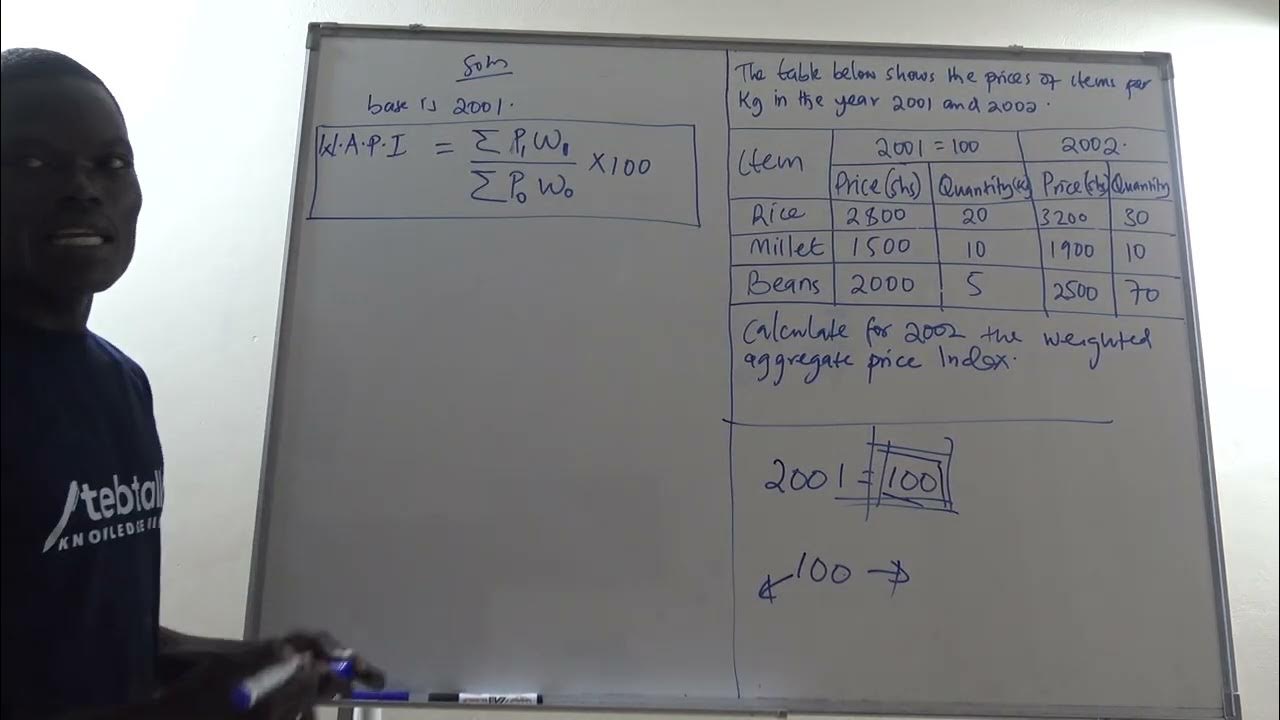 Soln
base is 2001.
W.A.P.I = ΣP₁W₁ / ΣP₀W₀ ×100
The table below shows the prices of items per
Kg in the year 2001 and 2002.
Item 2001 = 100 2002.
Price(shs) Quantity(kg) Price(shs) Quantity
Rice 2800 20 3200 30
Millet 1500 10 1900 10
Beans 2000 5 2500 70
Calculate for 2002 the weighted
aggregate price Index.
2001 = 100
100
tebtalk
KNOWLEDGE